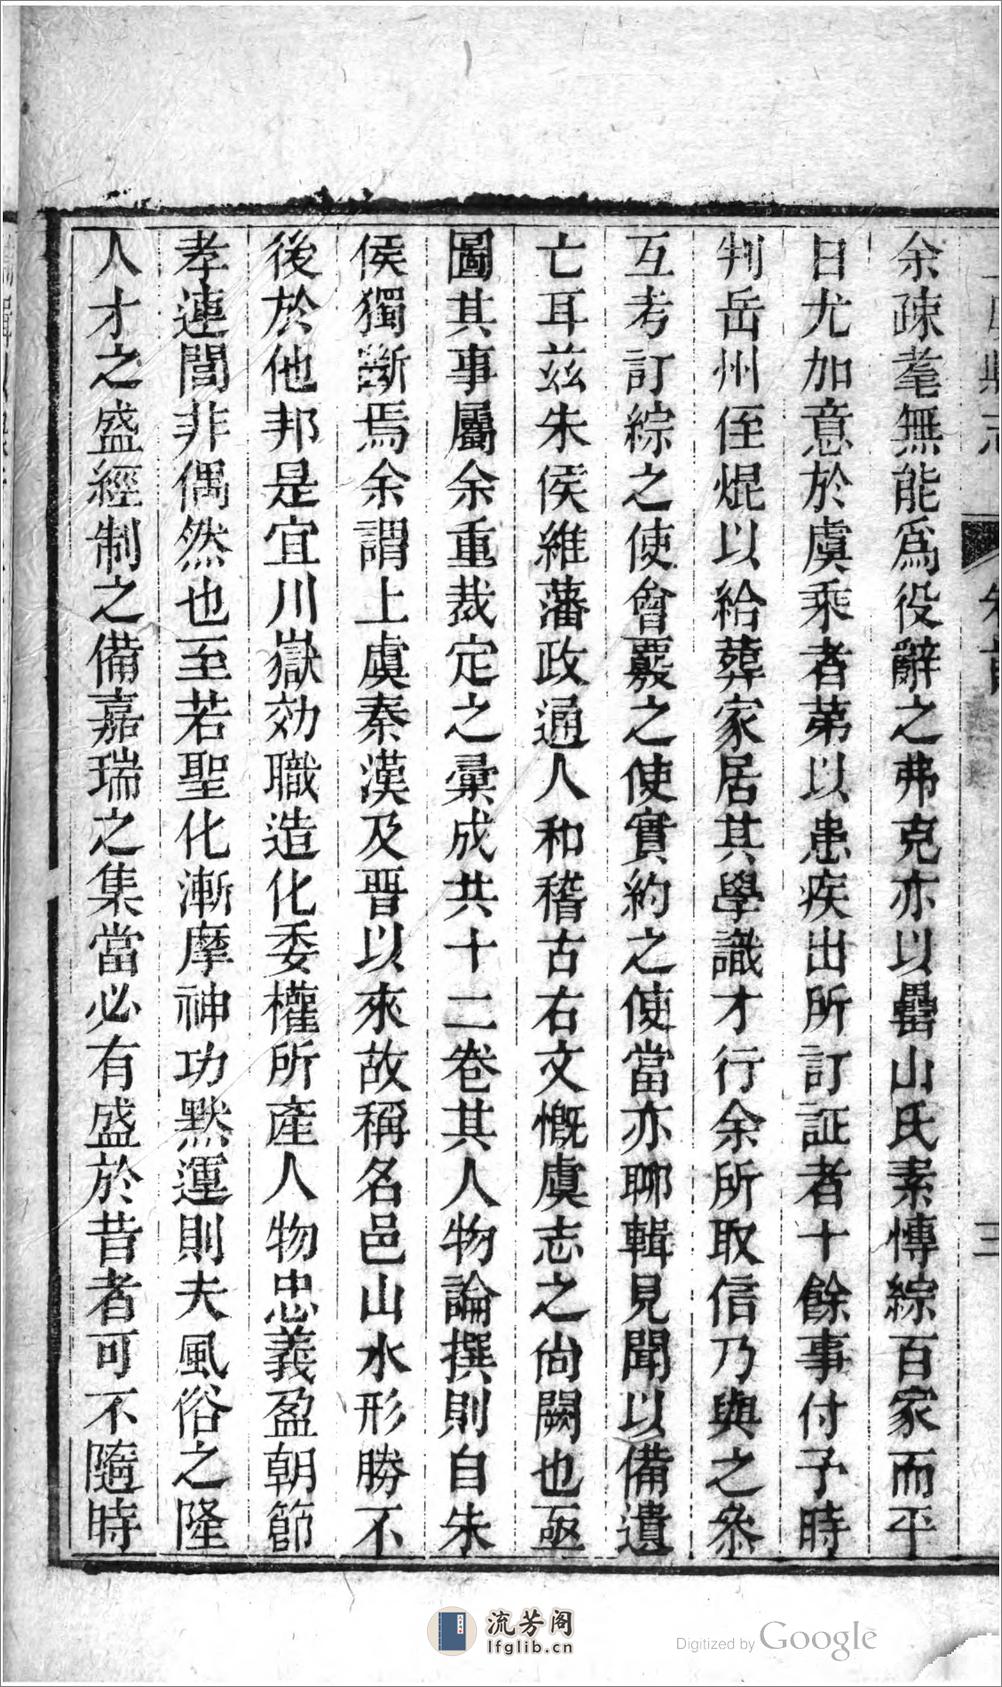 余疎髦無能爲役辭之弗克亦以罍山氏素慱綜百家而平
日尤加意於虞乘者苐以患疾出所訂証者十餘事付予時
判岳州侄焜以給葬家居其學識才行余所取信乃與之叅
互考訂綜之使會覈之使實約之使當亦聊輯見聞以備遺
亡耳兹朱侯維藩政通人和稽古右文慨虞志之尚闕也亟
圖其事屬余重裁定之彚成共十二卷其人物論撰則自朱
侯獨斷焉余謂上虞秦漢及晋以來故稱名邑山水形勝不
後於他邦是宜川嶽効職造化委權所產人物忠義盈朝節
孝連閭非偶然也至若聖化漸摩神功默運則夫風俗之隆
人才之盛經制之備嘉瑞之集當必有盛於昔者可不隨時
流芳阁
lfglib.cn
Digitized by Google